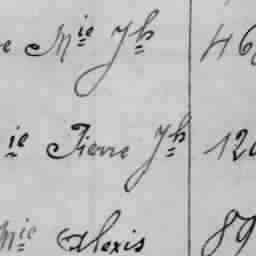 e Mie Jh 46
ie Pierre Jh 120
Mie Alexis 89